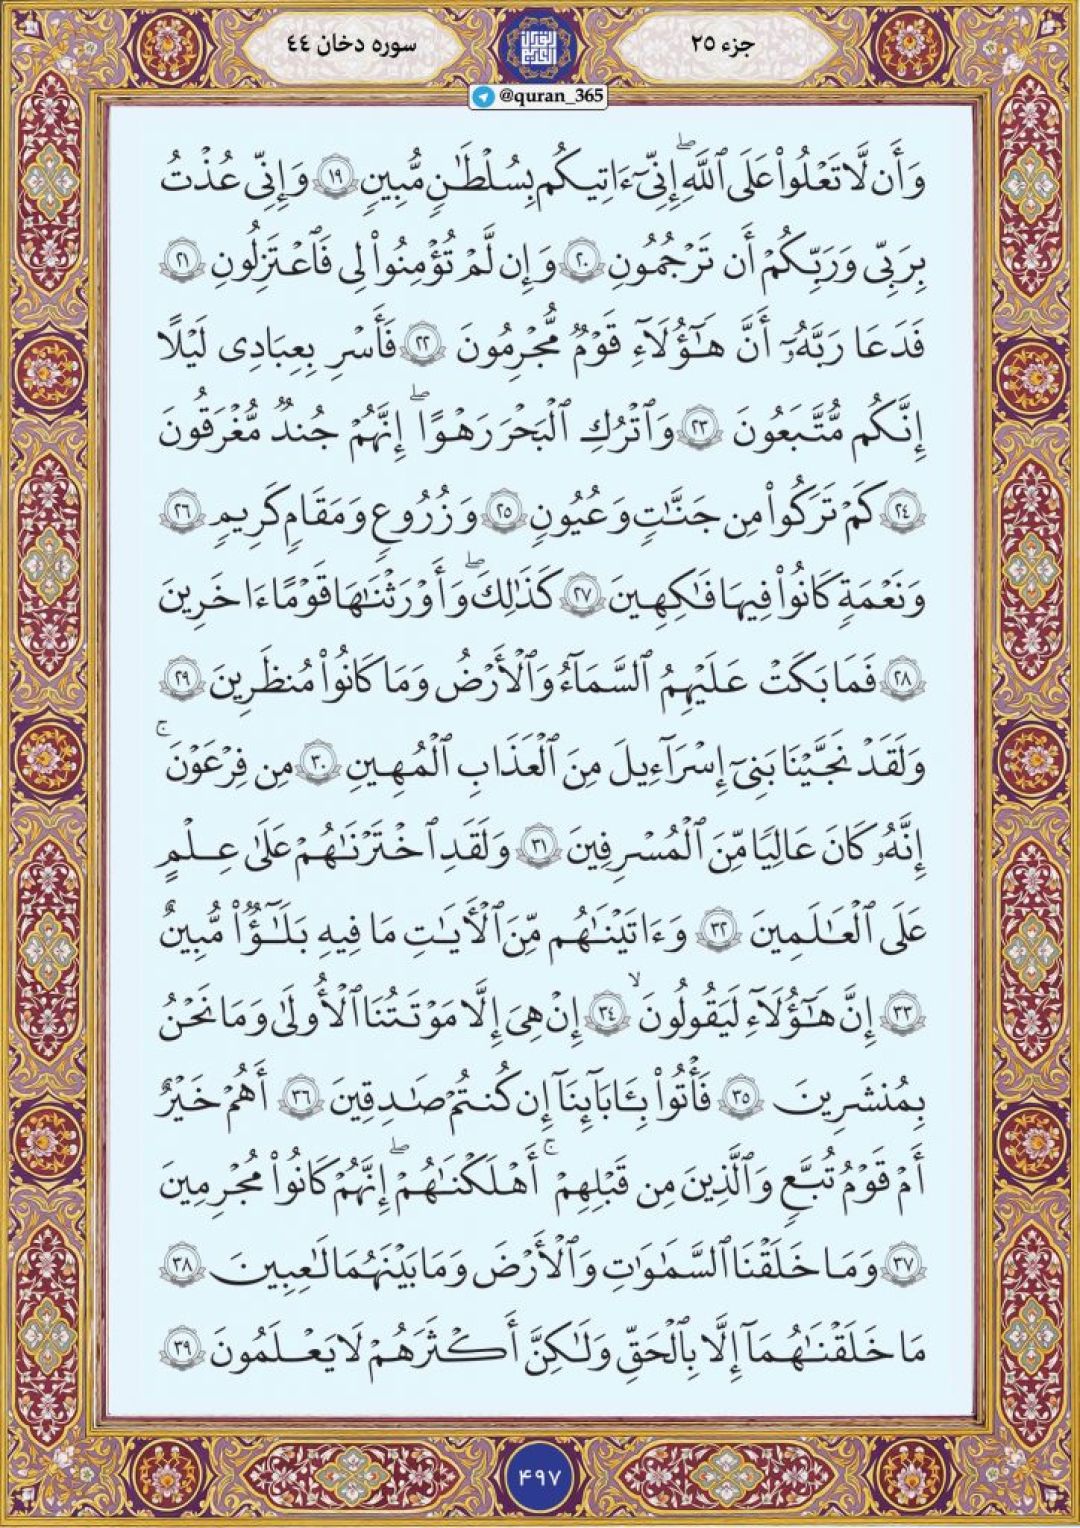 جزء ۲۵
سوره دخان ۴۴
@quran_365
وَأَن لَّا تَعْلُوا۟ عَلَى ٱللَّهِ ۖ إِنِّىٓ ءَاتِيكُم بِسُلْطَـٰنٍ مُّبِينٍ ١٩ وَإِنِّى عُذْتُ
بِرَبِّى وَرَبِّكُمْ أَن تَرْجُمُونِ ٢٠ وَإِن لَّمْ تُؤْمِنُوا۟ لِى فَٱعْتَزِلُونِ ٢١
فَدَعَا رَبَّهُۥٓ أَنَّ هَـٰٓؤُلَآءِ قَوْمٌ مُّجْرِمُونَ ٢٢ فَأَسْرِ بِعِبَادِى لَيْلًا
إِنَّكُم مُّتَّبَعُونَ ٢٣ وَٱتْرُكِ ٱلْبَحْرَ رَهْوًا ۖ إِنَّهُمْ جُندٌ مُّغْرَقُونَ
٢٤ كَمْ تَرَكُوا۟ مِن جَنَّـٰتٍ وَعُيُونٍ ٢٥ وَزُرُوعٍ وَمَقَامٍ كَرِيمٍ ٢٦
وَنَعْمَةٍ كَانُوا۟ فِيهَا فَـٰكِهِينَ ٢٧ كَذَٰلِكَ ۖ وَأَوْرَثْنَـٰهَا قَوْمًا ءَاخَرِينَ
٢٨ فَمَا بَكَتْ عَلَيْهِمُ ٱلسَّمَآءُ وَٱلْأَرْضُ وَمَا كَانُوا۟ مُنظَرِينَ ٢٩
وَلَقَدْ نَجَّيْنَا بَنِىٓ إِسْرَٰٓءِيلَ مِنَ ٱلْعَذَابِ ٱلْمُهِينِ ٣٠ مِن فِرْعَوْنَ ۚ
إِنَّهُۥ كَانَ عَالِيًا مِّنَ ٱلْمُسْرِفِينَ ٣١ وَلَقَدِ ٱخْتَرْنَـٰهُمْ عَلَىٰ عِلْمٍ
عَلَى ٱلْعَـٰلَمِينَ ٣٢ وَءَاتَيْنَـٰهُم مِّنَ ٱلْـَٔايَـٰتِ مَا فِيهِ بَلَـٰٓؤٌا۟ مُّبِينٌ
٣٣ إِنَّ هَـٰٓؤُلَآءِ لَيَقُولُونَ ۙ ٣٤ إِنْ هِىَ إِلَّا مَوْتَتُنَا ٱلْأُولَىٰ وَمَا نَحْنُ
بِمُنشَرِينَ ٣٥ فَأْتُوا۟ بِـَٔابَآئِنَآ إِن كُنتُمْ صَـٰدِقِينَ ٣٦ أَهُمْ خَيْرٌ
أَمْ قَوْمُ تُبَّعٍ وَٱلَّذِينَ مِن قَبْلِهِمْ ۚ أَهْلَكْنَـٰهُمْ ۖ إِنَّهُمْ كَانُوا۟ مُجْرِمِينَ
٣٧ وَمَا خَلَقْنَا ٱلسَّمَـٰوَٰتِ وَٱلْأَرْضَ وَمَا بَيْنَهُمَا لَـٰعِبِينَ ٣٨
مَا خَلَقْنَـٰهُمَآ إِلَّا بِٱلْحَقِّ وَلَـٰكِنَّ أَكْثَرَهُمْ لَا يَعْلَمُونَ ٣٩
۴۹۷